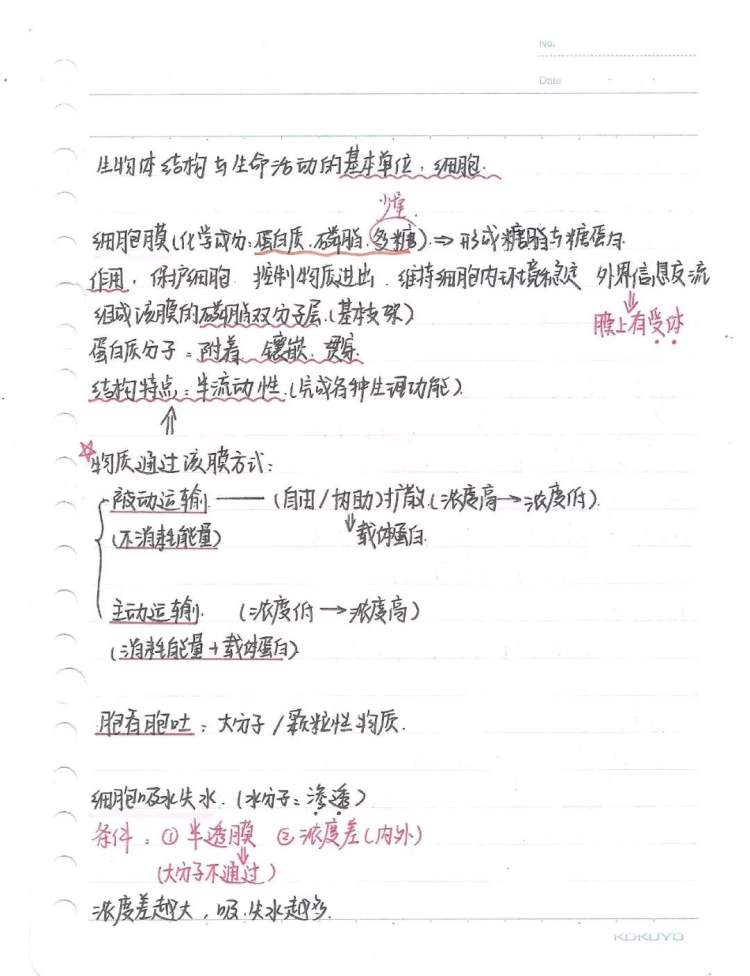 No.
Date
生物体结构与生命活动的基本单位:细胞.
少量
细胞膜(化学成分:蛋白质.磷脂.多糖)⇒形成糖脂与糖蛋白.
作用.保护细胞 控制物质进出.维持细胞内环境稳定 外界信息交流
组成该膜的磷脂双分子层.(基本支架)
膜上有受体
蛋白质分子:附着.镶嵌.贯穿.
结构特点:半流动性.(完成各种生理功能).
☆物质通过该膜方式:
被动运输 —— (自由/协助)扩散.(浓度高→浓度低).
(不消耗能量)
载体蛋白.
主动运输. (浓度低→浓度高)
(消耗能量+载体蛋白)
胞吞胞吐:大分子/颗粒性物质.
细胞吸水失水.(水分子:渗透)
条件:①半透膜 ②浓度差(内外)
(大分子不通过)
浓度差越大,吸.失水越多.
KOKUYO